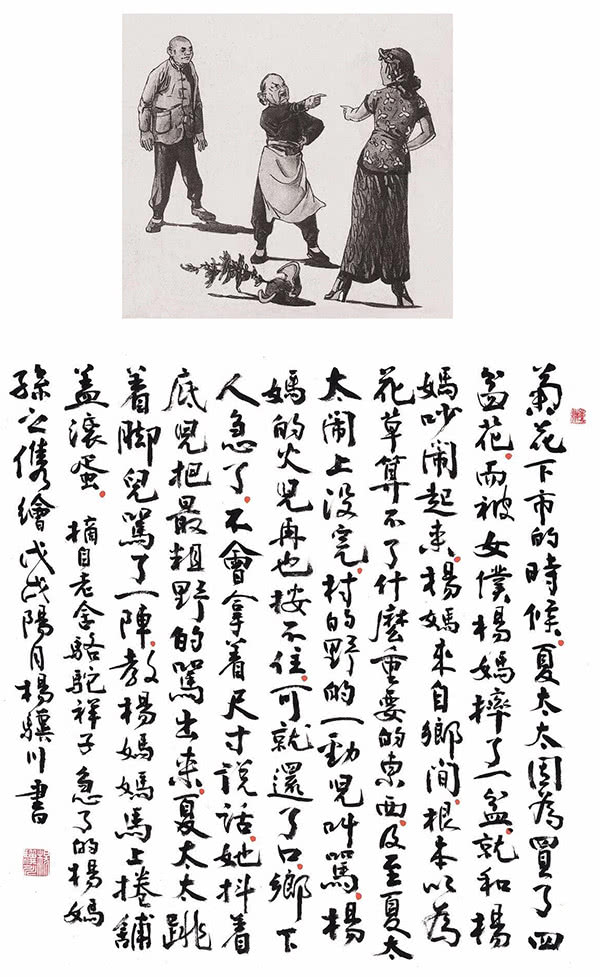 菊花下市的時候。夏太太因為買了四
盆花。而被女僕楊媽摔了一盆。就和楊
媽吵鬧起来。楊媽来自鄉間。根本以為
花草算不了什麼重要的東西。及至夏太
太鬧上沒完。村的野的一勁兒叫罵。楊
媽的火兒再也按不住。可就還了口。鄉下
人急了。不會拿着尺寸說話。她抖着
底兒把最粗野的罵出来。夏太太跳
着脚兒罵了一陣。教楊媽媽馬上捲鋪
盖滾蛋。 摘自老舍駱駝祥子 急了的楊媽
孫之儁繪 戊戌陽月楊驥川書